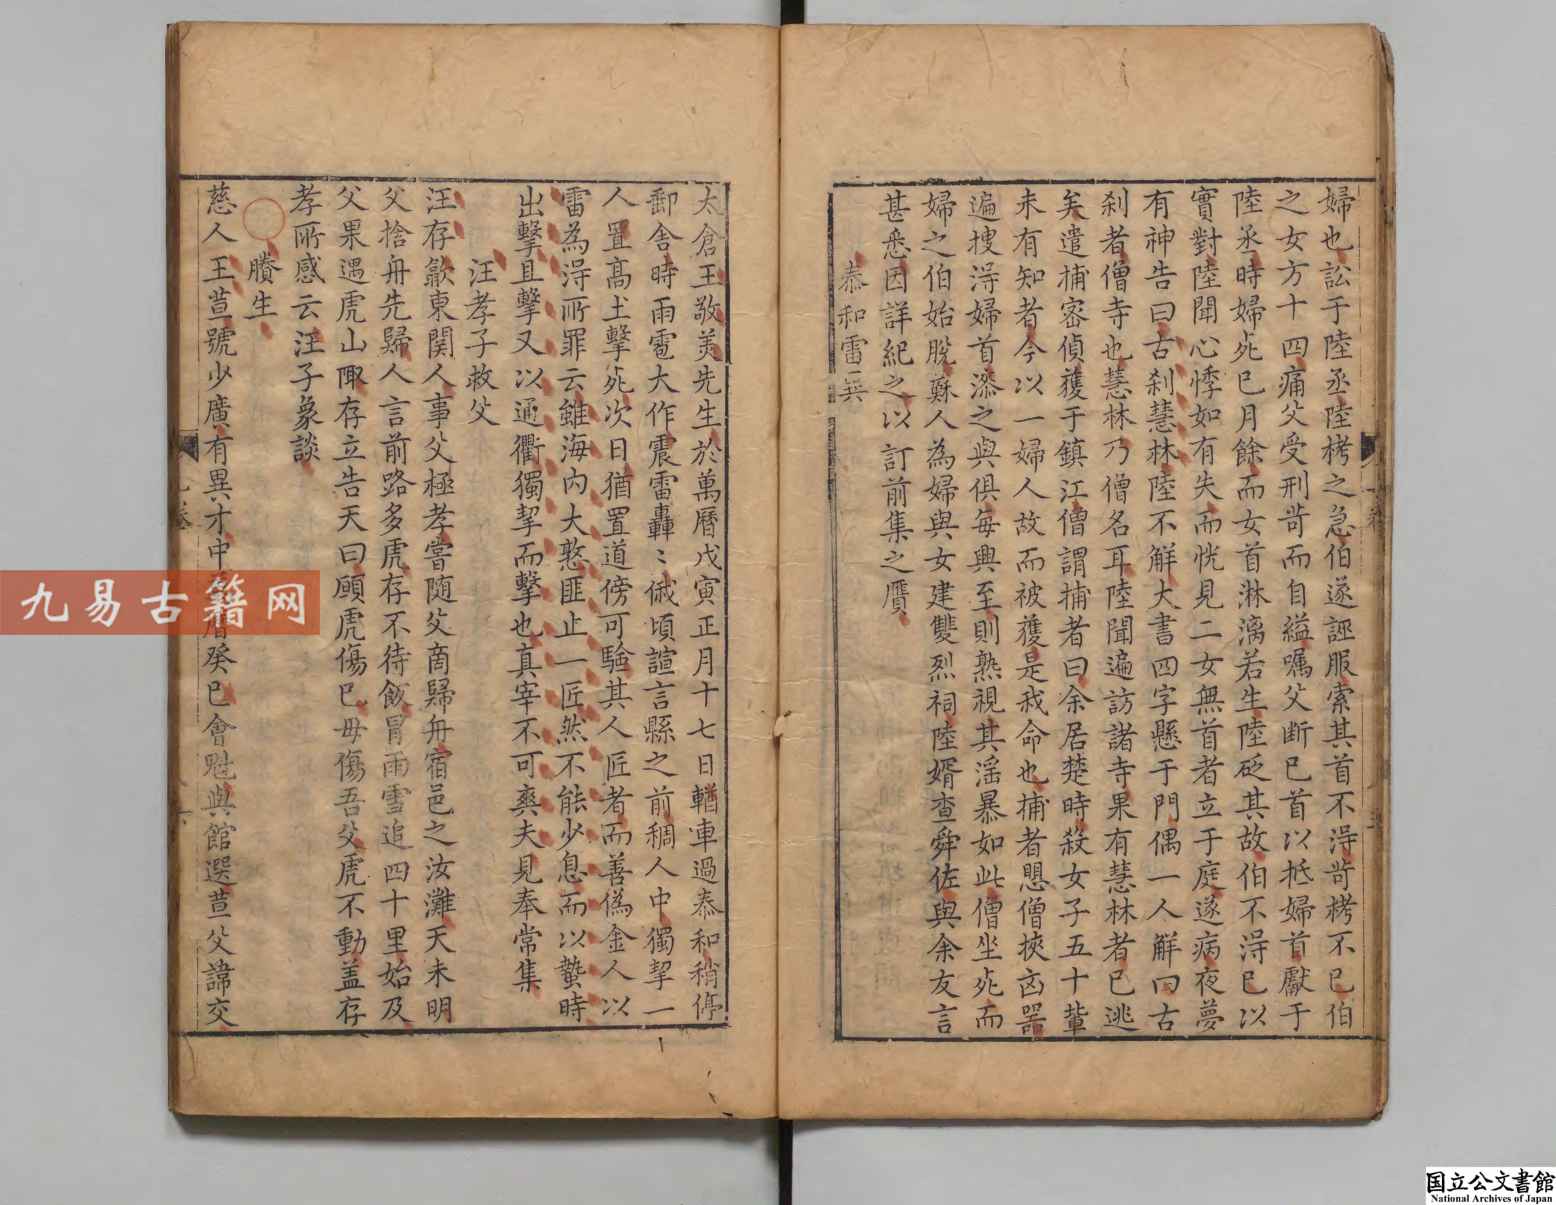 婦也訟于陸丞陸栲之急伯遂誣服索其首不淂苛栲不已伯
之女方十四痛父受刑苛而自縊嘱父断已首以抵婦首獻于
陸丞時婦死已月餘而女首淋漓若生陸砭其故伯不淂已以
實對陸聞心悸如有失而恍見二女無首者立于庭遂病夜夢
有神告曰古刹慧林陸不解大書四字懸于門偶一人解曰古
刹者僧寺也慧林乃僧名耳陸聞遍訪諸寺果有慧林者已逃
矣遣捕密偵獲于鎮江僧謂捕者曰余居楚時殺女子五十輩
未有知者今以一婦人故而被獲是我命也捕者愳僧挾凶噐
遍搜淂婦首漆之與俱每興至則熟視其淫暴如此僧坐死而
婦之伯始脫蘇人為婦與女建雙烈祠陸婿查舜佐與余友言
甚悉因詳紀之以訂前集之贋
泰和雷異
太倉王敬美先生於萬曆戊寅正月十七日輶車過泰和稍停
郵舎時雨雹大作震雷轟〻俄頃諠言縣之前稠人中獨挈一
人置髙土擊死次日猶置道傍可驗其人匠者而善偽金人以
雷為淂所罪云雖海內大憝匪止一匠然不能少息而以蟄時
出擊且擊又以通衢獨挈而擊也真宰不可爽夫見奉常集
汪孝子救父
汪存歙東関人事父極孝嘗随父商歸舟宿邑之汝灘天未明
父捨舟先歸人言前路多虎存不待飯冒雨雪追四十里始及
父果遇虎山陬存立告天曰願虎傷已毋傷吾父虎不動盖存
孝所感云汪子象談
賸生
慈人王荁號少廣有異才中曆癸巳會魁與館選荁父諱交
九易古籍网
国立公文書館
National Archives of Japan